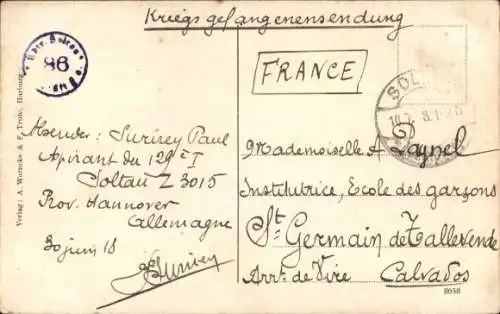 Kriegsgefangenensendung
86
FRANCE
SOL
Absender: Surirey Paul
Aspirant du 129e I
Soltau Z 3015
Prov. Hannover
Allemagne
30 juin 18
Surirey
Mademoiselle A Laynel
Institutrice, Ecole des garçons
St Germain de Tallevende
Arrt. de Vire Calvados
Verlag: A. Wernecke & F. Trute, Harburg.
8658